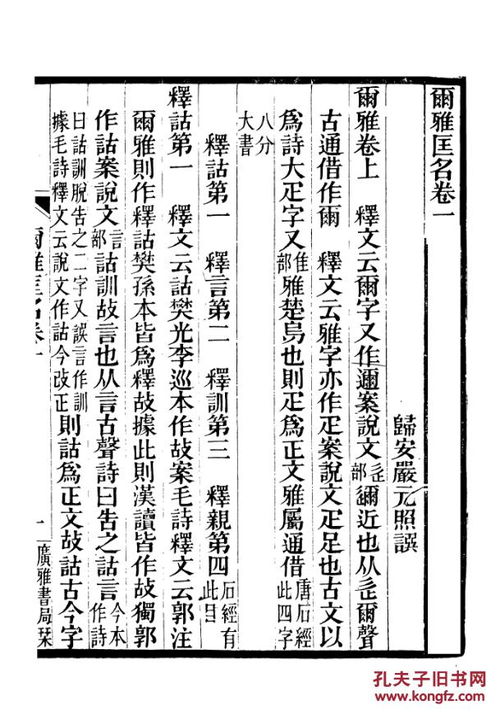 爾雅匡名卷一
歸安嚴元照譔
爾雅卷上　釋文云爾字又作邇案說文辵部邇近也从辵爾聲
古通借作爾　釋文云雅字亦作疋案說文疋足也古文以
爲詩大疋字又隹部雅楚烏也則疋爲正文雅屬通借唐石經此四字
八分大書
釋詁第一　釋言第二　釋訓第三　釋親第四石經有此目
釋詁第一　釋文云詁樊光李巡本作故案毛詩釋文云郭注
爾雅則作釋詁樊孫本皆爲釋故據此則漢讀皆作故獨郭
作詁案說文言部詁訓故言也从言古聲詩曰告之詁言今本作詩
曰詁訓脫告之二字又誤言作訓據毛詩釋文云說文作詁今改正則詁爲正文故詁古今字
爾雅匡名卷一
一
廣雅書局栞
孔夫子旧书网
www.kongfz.com